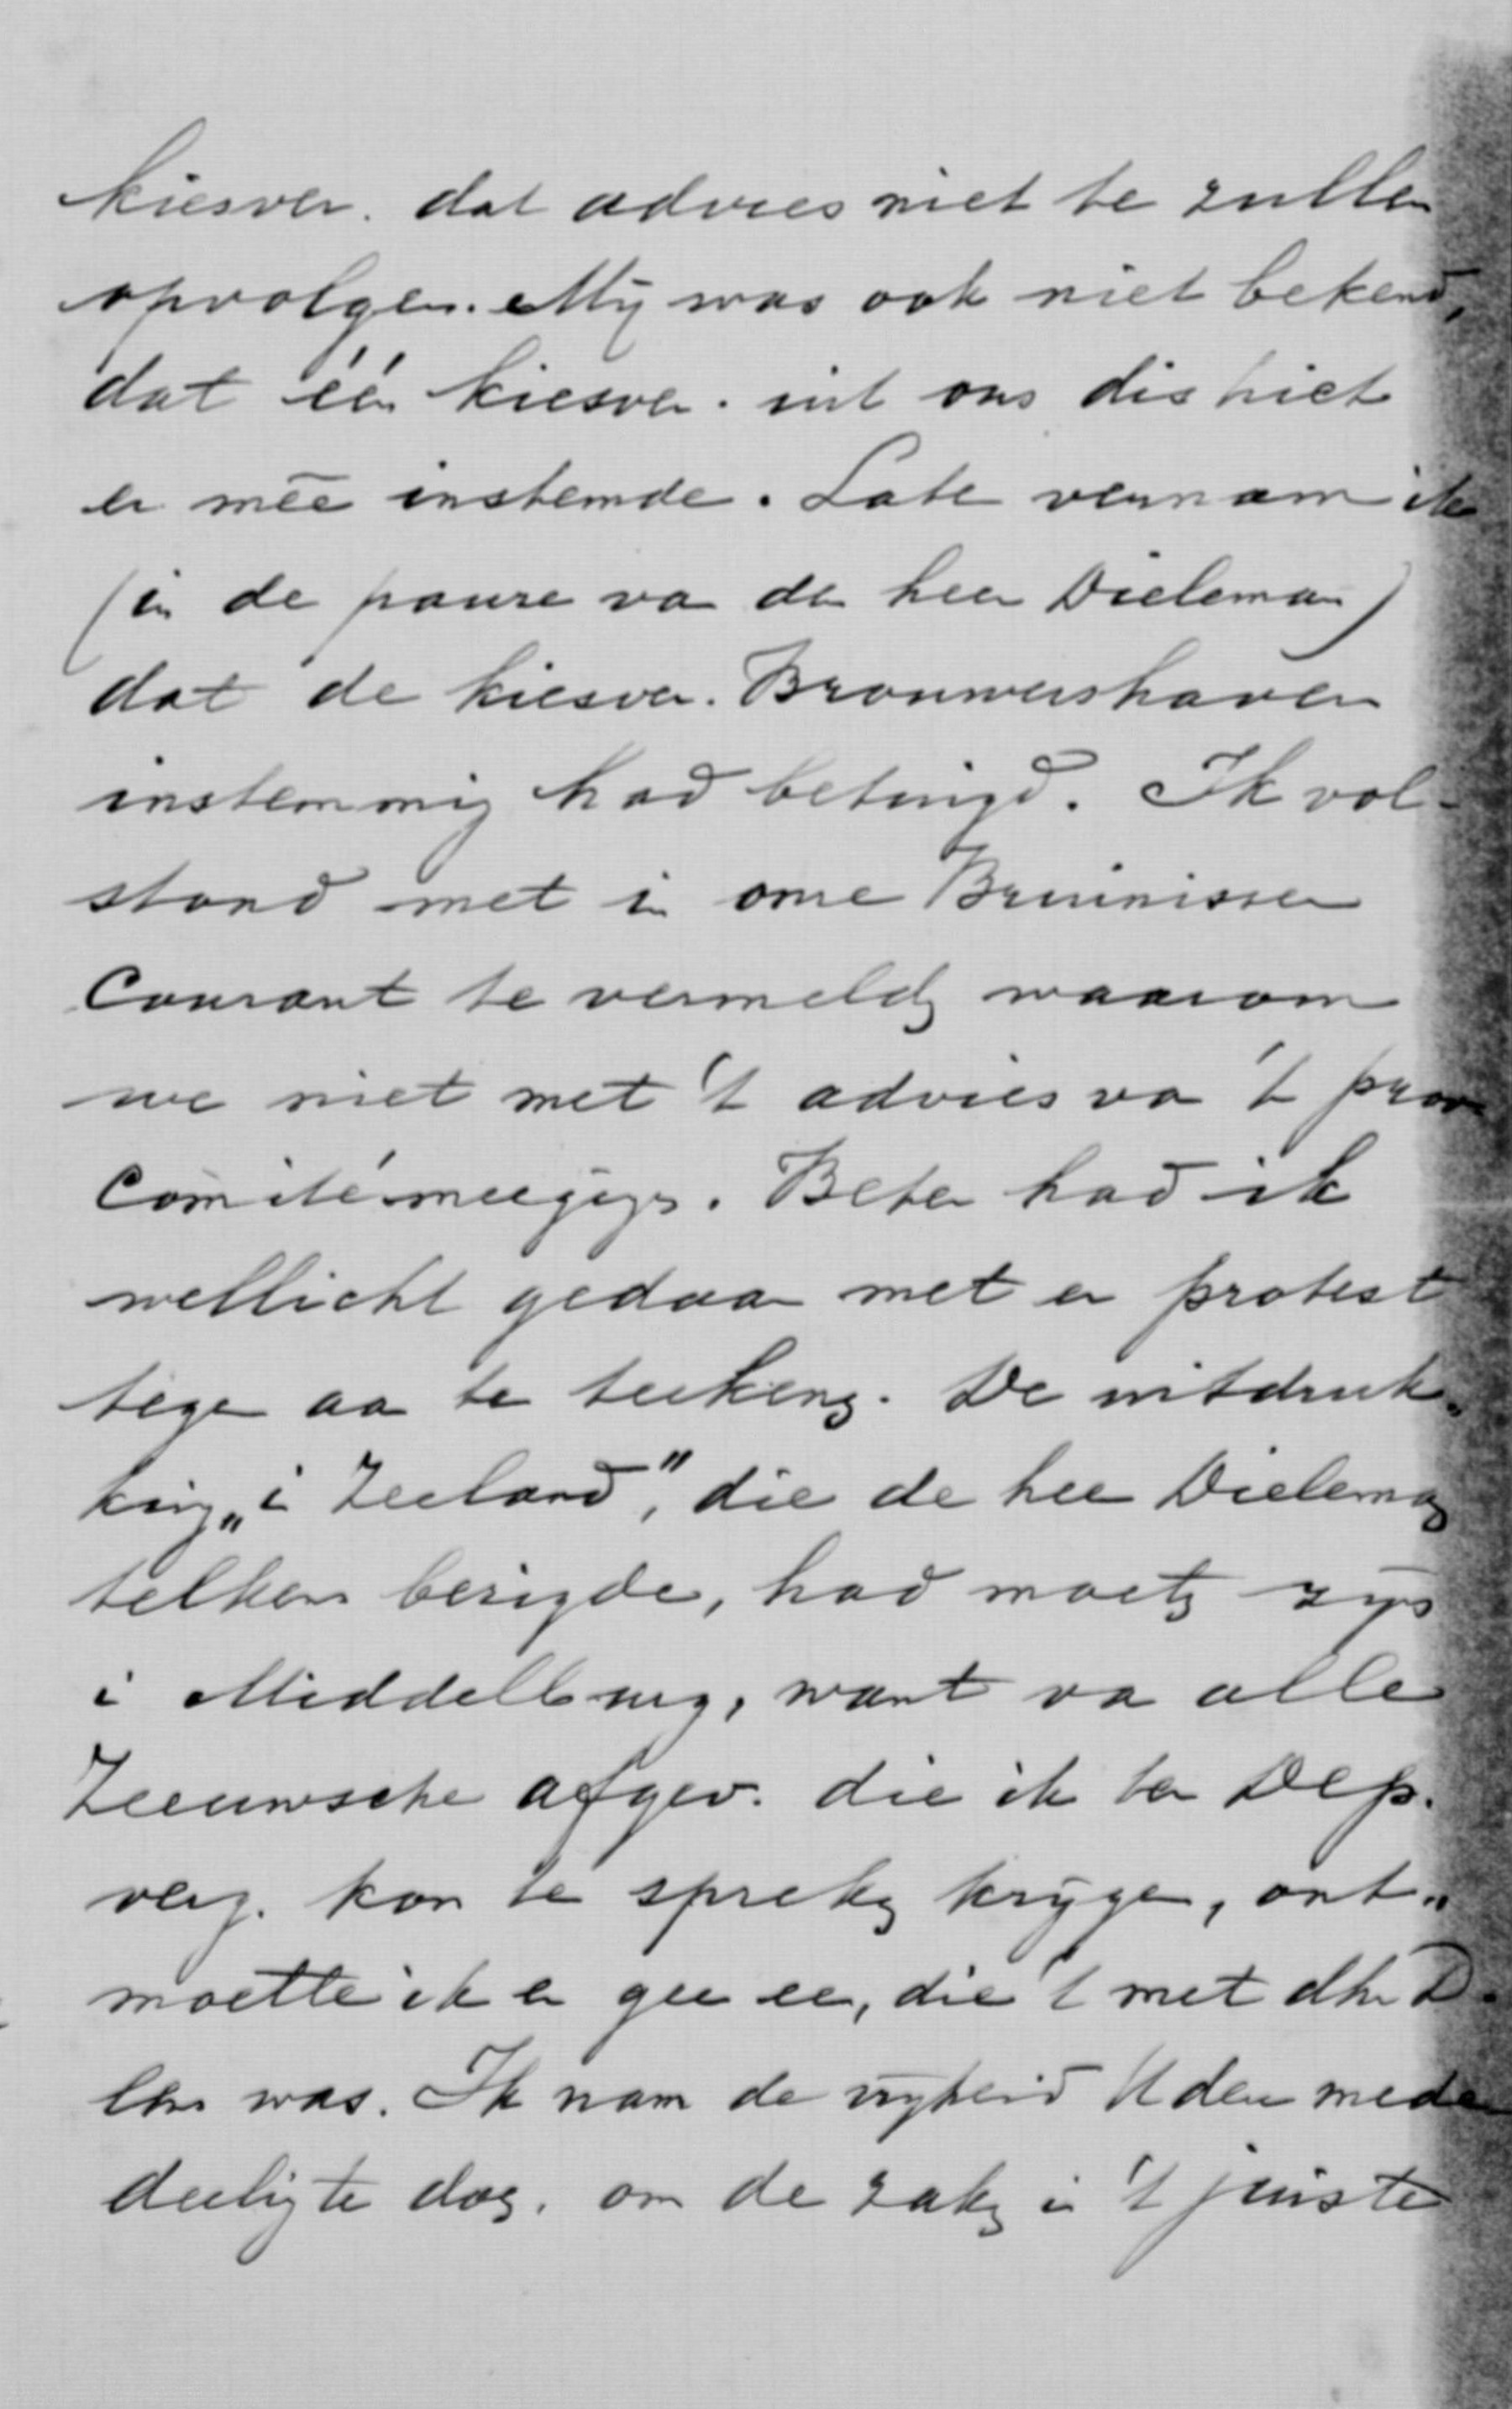 kiesver. dat advies niet te zullen
opvolgen. Mij was ook niet bekend,
dat één kiesver. uit ons district
er mêe instemde. Later vernam ik
(in de pauze van den heer Dieleman)
dat de kiesver. Brouwershaven
instemming had betuigd. Ik vol-
stond met in onze Bruinisser
Courant te vermelden waarom
we niet met 't advies van 't prov.
Comité meegingen. Beter had ik
wellicht gedaan met er protest
tegen aan te teekenen. De uitdruk-
king „in Zeeland", die de heer Dieleman
telkens bezigde, had moeten zijn
in Middelburg, want van alle
Zeeuwsche afgev. die ik ter Dep.
verg. kon te spreken krijgen, ont-
moette ik er geen een, die 't met dhr D.
eens was. Ik nam de vrijheid U deze mede
deeling te doen. om de zaken in 't juiste